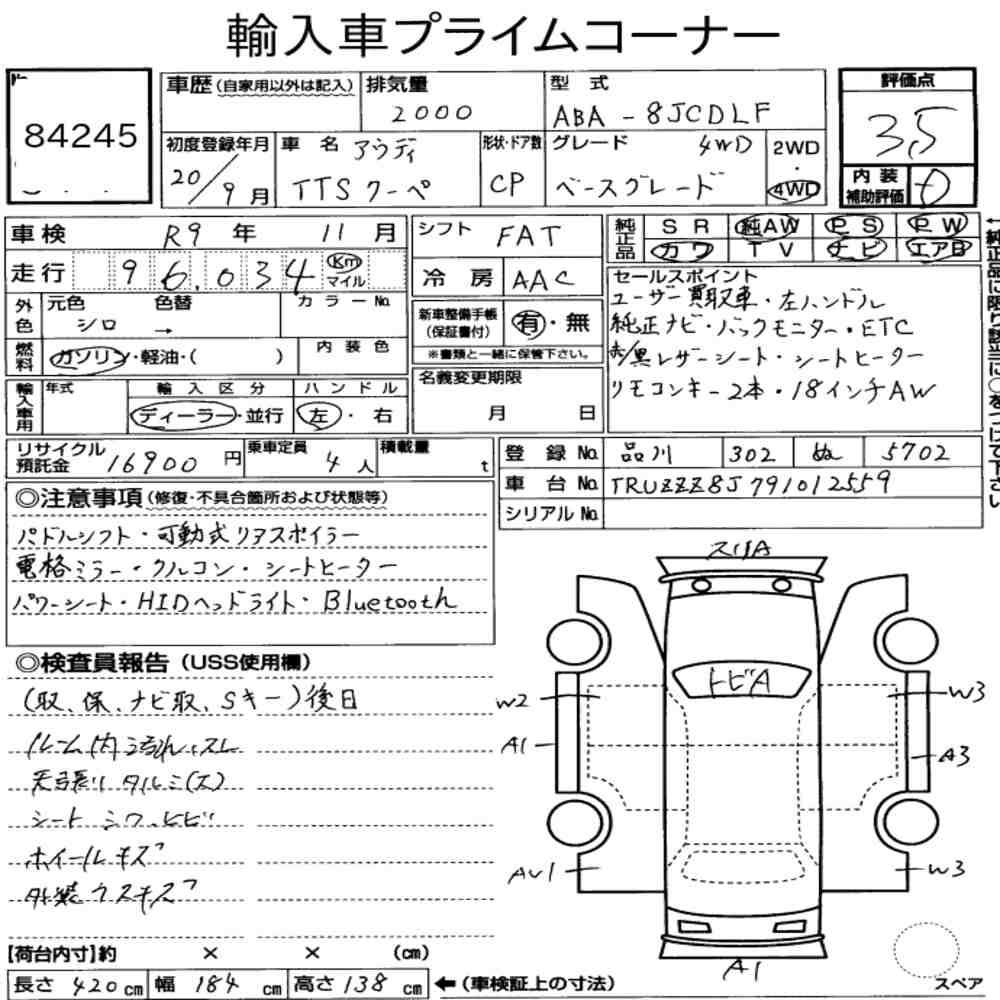 輸入車プライムコーナー
84245
車歴(自家用以外は記入)
排気量
2000
型式
ABA-8JCDLF
評価点
3.5
初度登録年月
20/9月
車名
アウディ
TTSクーペ
形状・ドア数
CP
グレード
4WD
ベースグレード
2WD
・
4WD
内装
補助評価
D
車検 R9年 11月
走行 96,034 Km マイル
シフト FAT
冷房 AAC
純正品
SR 純AW PS PW
カワ TV ナビ エアB
←純正品に限り該当に○をつけて下さい
外色
元色
シロ
色替
→
カラーNo.
燃料
ガソリン・軽油・( )
内装色
新車整備手帳
(保証書付)
有・無
※書類と一緒に保管下さい。
セールスポイント
ユーザー買取車・左ハンドル
純正ナビ・バックモニター・ETC
赤/黒レザーシート・シートヒーター
リモコンキー2本・18インチAW
輸入車用
年式
輸入区分
ディーラー・並行
ハンドル
左・右
名義変更期限
月 日
リサイクル
預託金 16900円
乗車定員
4人
積載量
t
登録No. 品川 302 ぬ 5702
車台No. TRUZZZ8J791012559
シリアルNo.
◎注意事項(修復・不具合箇所および状態等)
パドルシフト・可動式リアスポイラー
電格ミラー・クルコン・シートヒーター
パワーシート・HIDヘッドライト・Bluetooth
◎検査員報告(USS使用欄)
(取、保、ナビ取、Sキー)後日
ルーム内汚れ、スレ
天張りタルミ(大)
シート シワ、ヒビ
ホイールキズ
外装ウスキズ
スリA
トビA
W2
W3
A1
A3
AU1
W3
A1
スペア
【荷台内寸】約 × × (cm)
長さ 420cm 幅 184cm 高さ 138cm ←(車検証上の寸法)